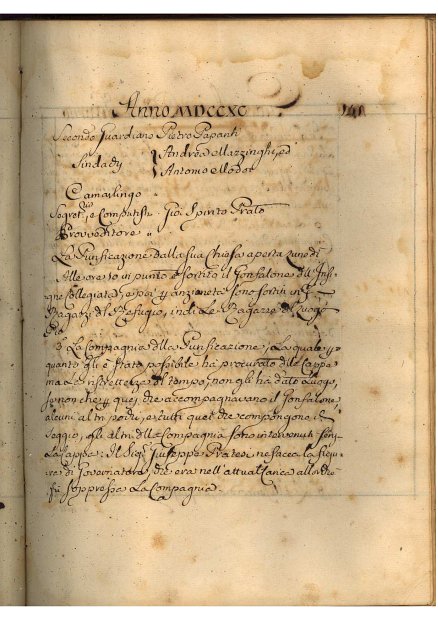 Anno MDCCXC 141
Secondo Guardiano Pietro Papanti
Sindaci Andrea Mazzinghi, ed
Antonio
Camarlingo
e Computista Gio: Spirito Prato
Provveditore
La Purificazione dalla sua Chiesa aperta
Alle ore 10 in punto è sortito il Gonfalone dell' Insi-
gne Collegiata, e poi anzianità sono sortiti
Ragazzi del Refugio, indi Le Ragazze del
La Compagnia della Purificazione, La quale
quanto gli è stato possibile ha procurato di
ma La ristrettezza di tempo, non gli ha dato Luogo,
se non che quei che accompagnavano il Gonfalone
alcuni altri, e tutti quei che compongono il
Seggio, gli altri della Compagnia sono intervenuti
Cappa: Il Sigr. Giuseppe Pratesi ne facea la
di Governatore, che era nell' attual carica allorchè
fù soppressa La Compagnia.